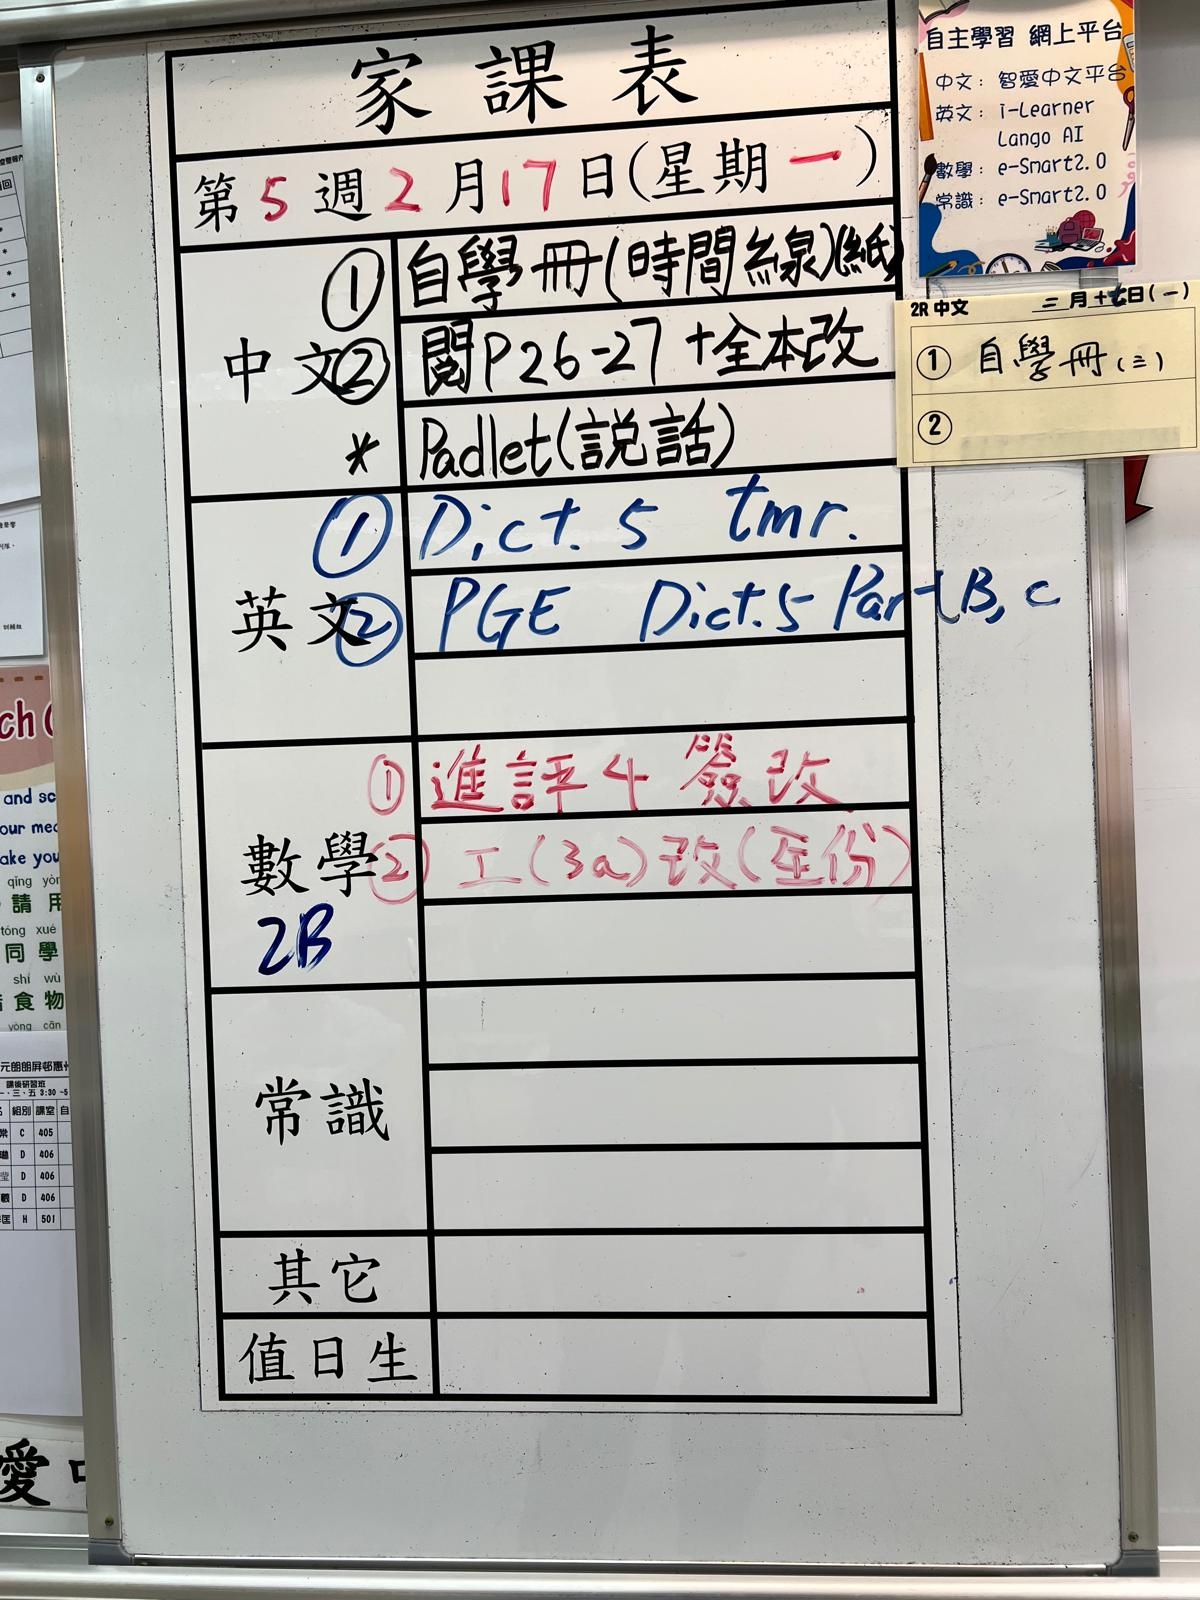 家課表
第5週2月17日(星期一)
中文
① 自學冊(時間線)(紙)
② 閱P26-27+全本改
* Padlet(説話)
英文
① Dict. 5 tmr.
② PGE Dict.5 Part B, C
數學
2B
① 進評4 簽改
② 工(3a)改(至份)
常識
其它
值日生
自主學習 網上平台
中文：智愛中文平台
英文：i-Learner
Lango AI
數學：e-Smart2.0
常識：e-Smart2.0
2R 中文 二月十七日(一)
① 自學冊(三)
②
ch
and sc
our
ake you
qǐng yòn
請用
tóng xué
同學
shí wù
食物
yòng cān
元朗朗屏邨惠
課後研習班
一、三、五 3:30 ~5
組別 課室 自
C 405
D 406
D 406
D 406
H 501
愛